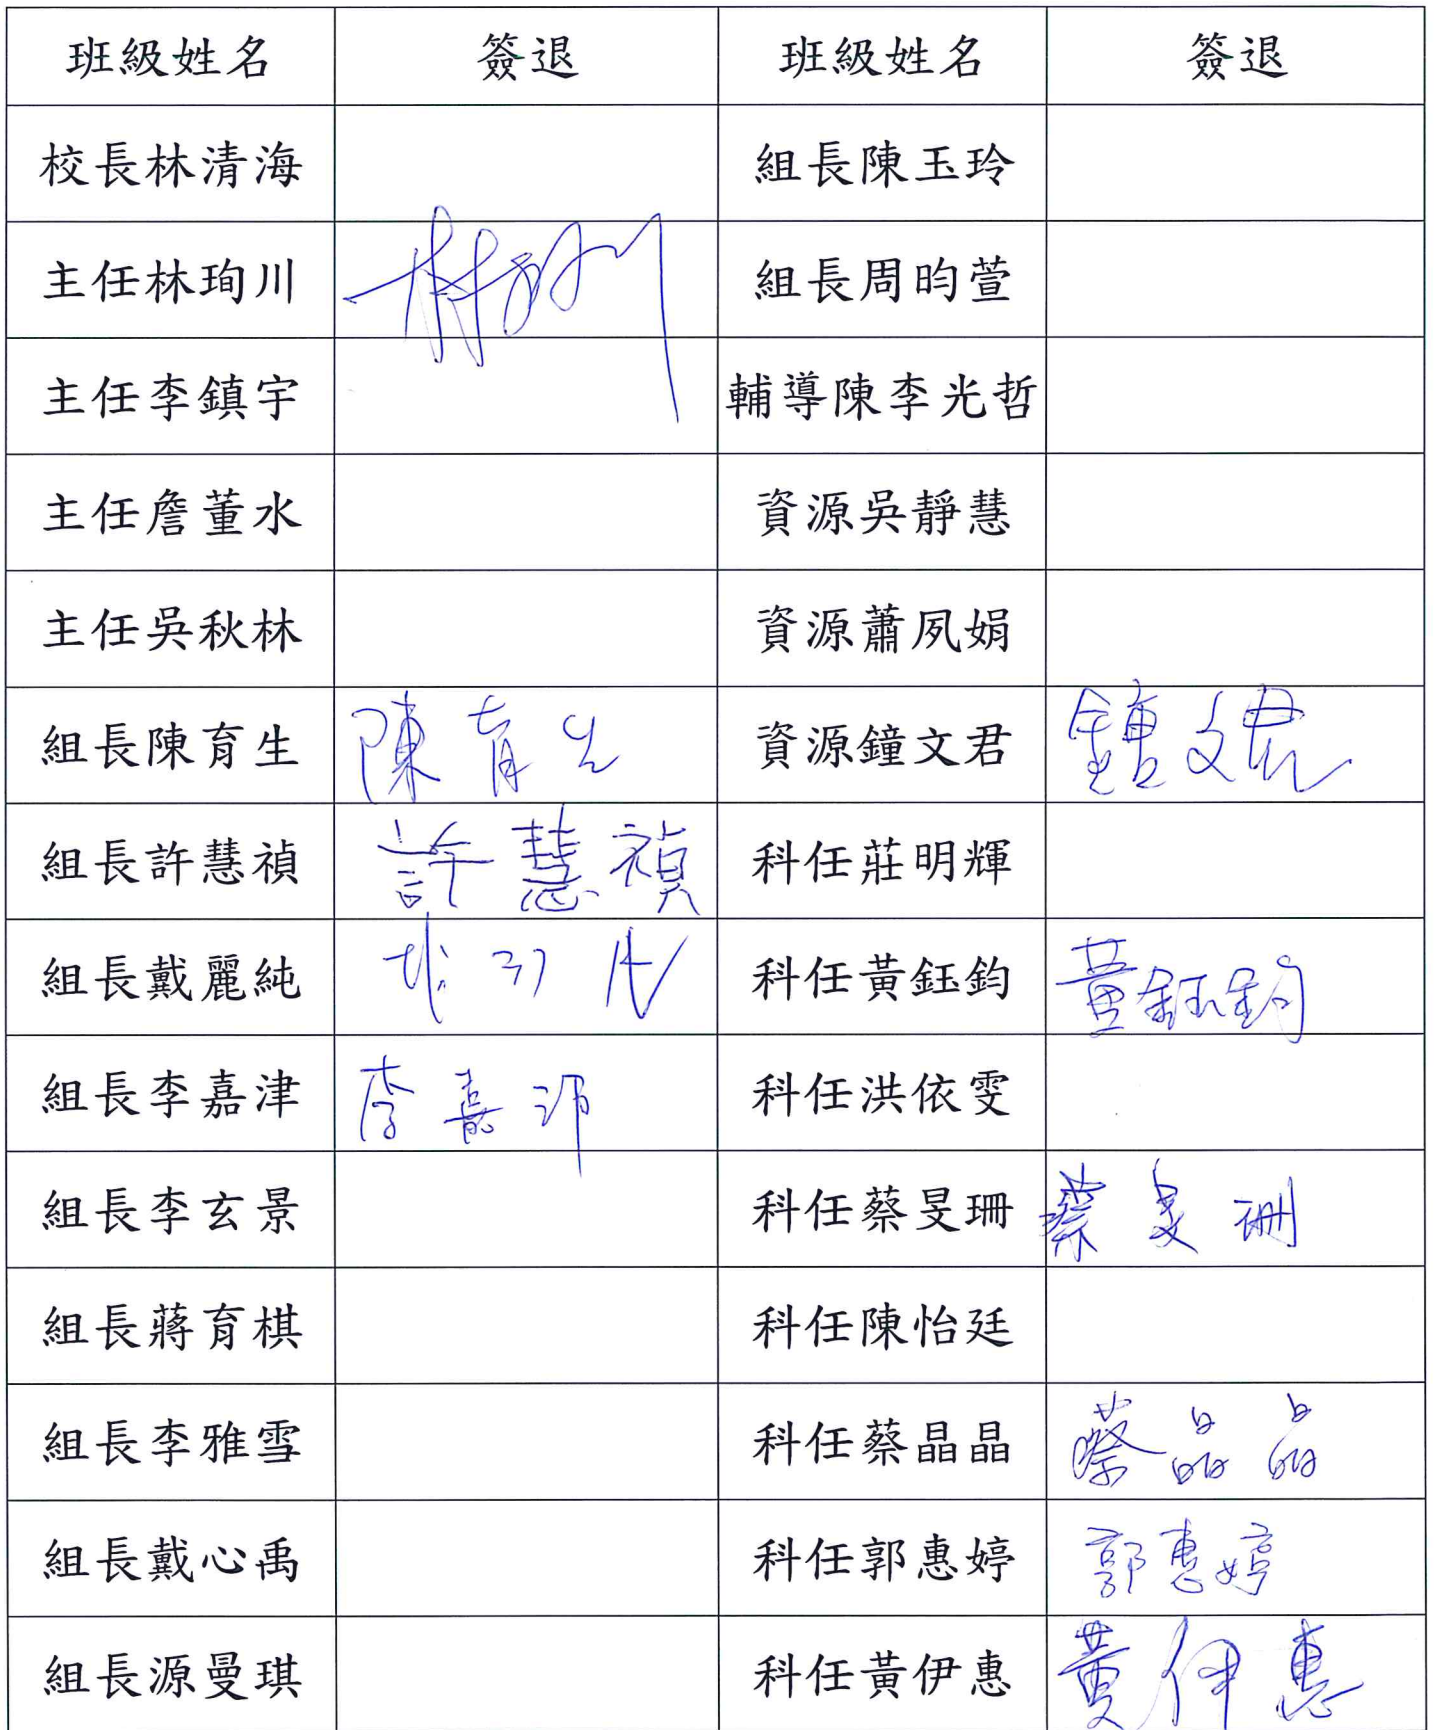 班級姓名 簽退 班級姓名 簽退
校長林清海 組長陳玉玲
主任林珣川 林珣川 組長周昀萱
主任李鎮宇 輔導陳李光哲
主任詹董水 資源吳靜慧
主任吳秋林 資源蕭夙娟
組長陳育生 陳育生 資源鐘文君 鐘文君
組長許慧禎 許慧禎 科任莊明輝
組長戴麗純 科任黃鈺鈞 黃鈺鈞
組長李嘉津 李嘉津 科任洪依雯
組長李玄景 科任蔡旻珊 蔡旻珊
組長蔣育棋 科任陳怡廷
組長李雅雪 科任蔡晶晶 蔡晶晶
組長戴心禹 科任郭惠婷 郭惠婷
組長源曼琪 科任黃伊惠 黃伊惠